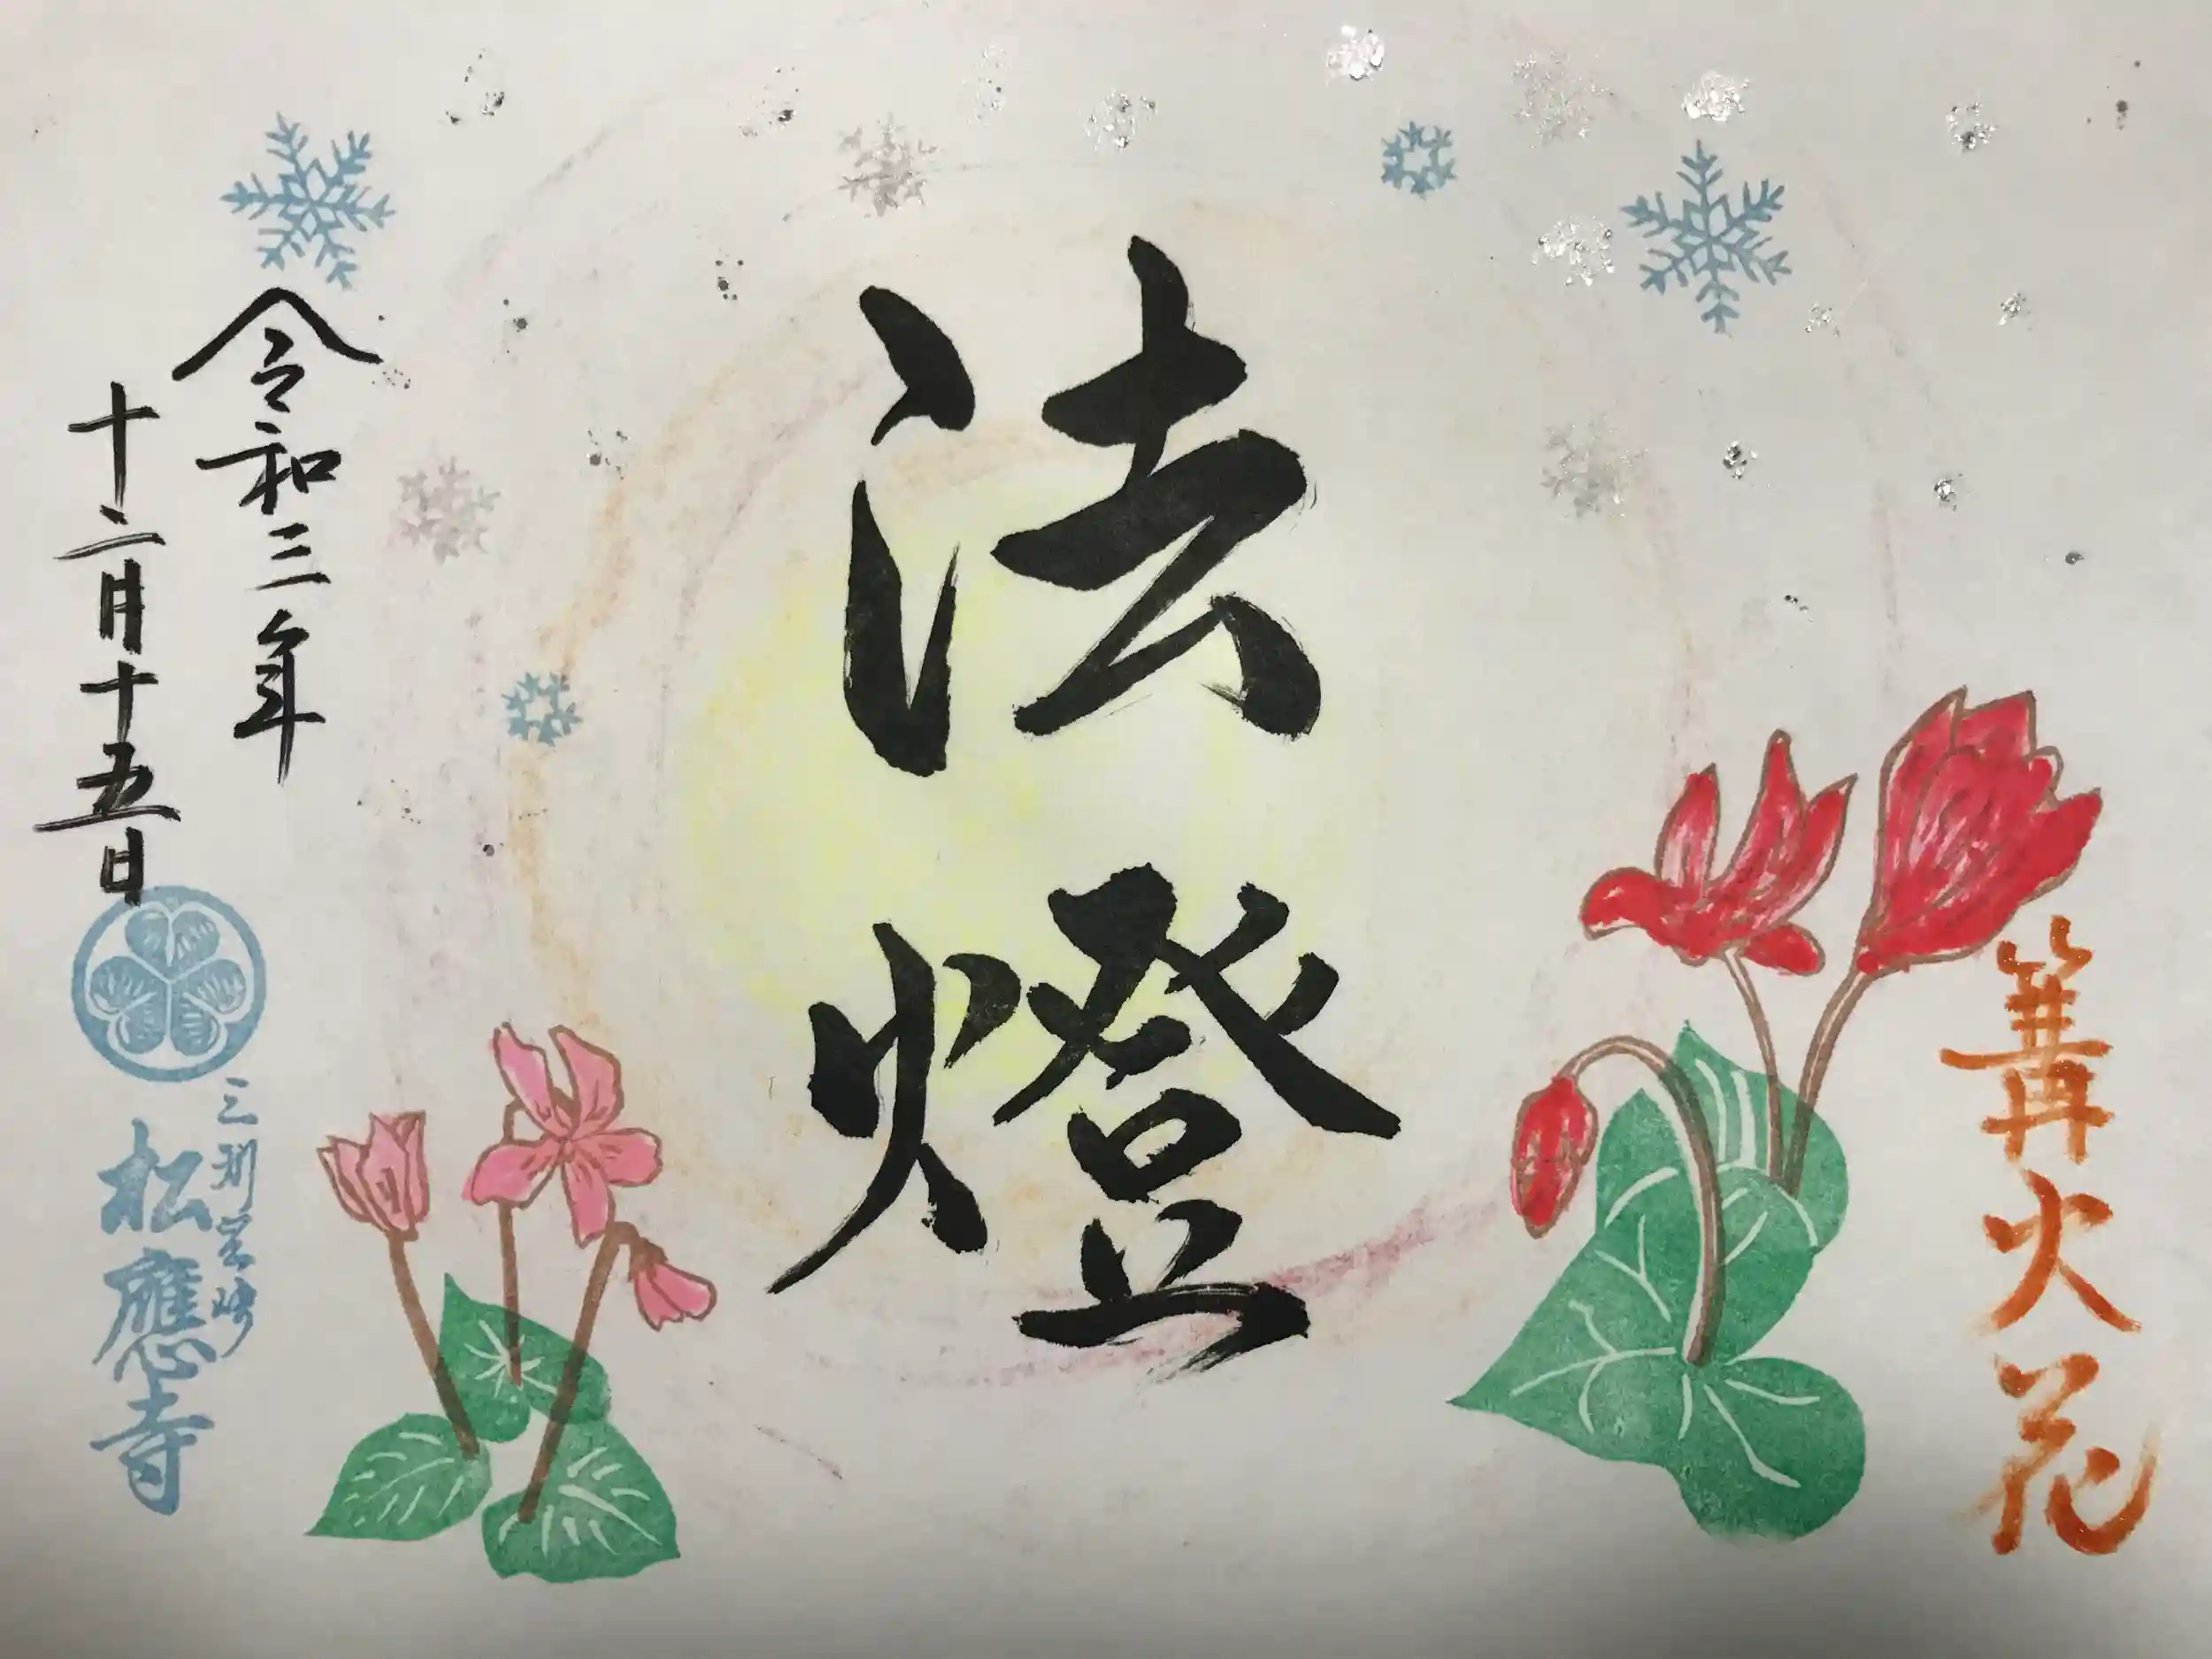 篝火花
法燈
令和三年
十二月十五日
三州岡崎
松應寺